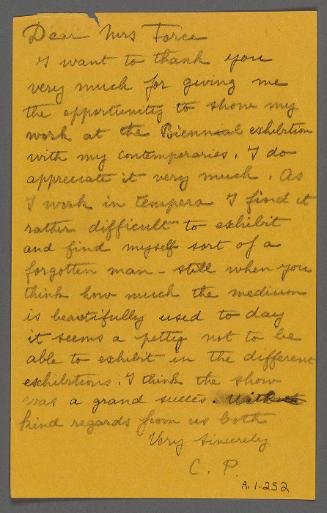 Dear Mrs Force
I want to thank you
very much for giving me
the opportunity to show my
work at the Biennual exhibition
with my contemporaries. I do
appreciate it very much. As
I work in tempera I find it
rather difficult to exhibit
and find myself sort of a
forgotten man - still when you
think how much the medium
is beautifully used to day
it seems a petty not to be
able to exhibit in the different
exhibitions. I think the show
was a grand succes. With
kind regards from us both
Very Sincerely
C. P.
A.1-252